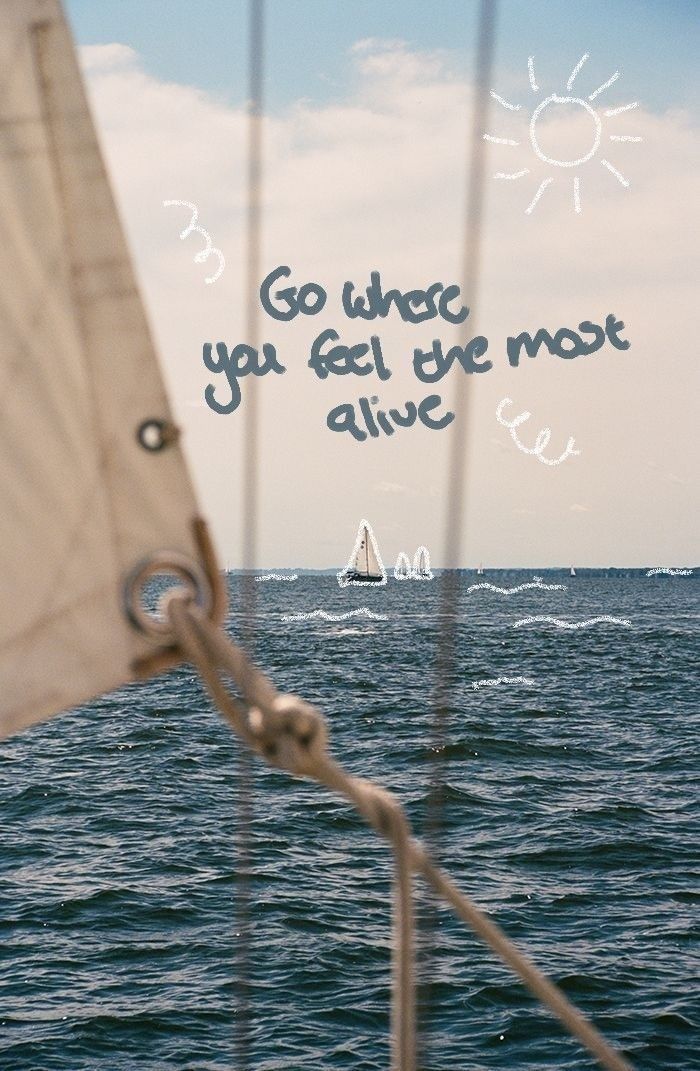 Go where
you feel the most
alive